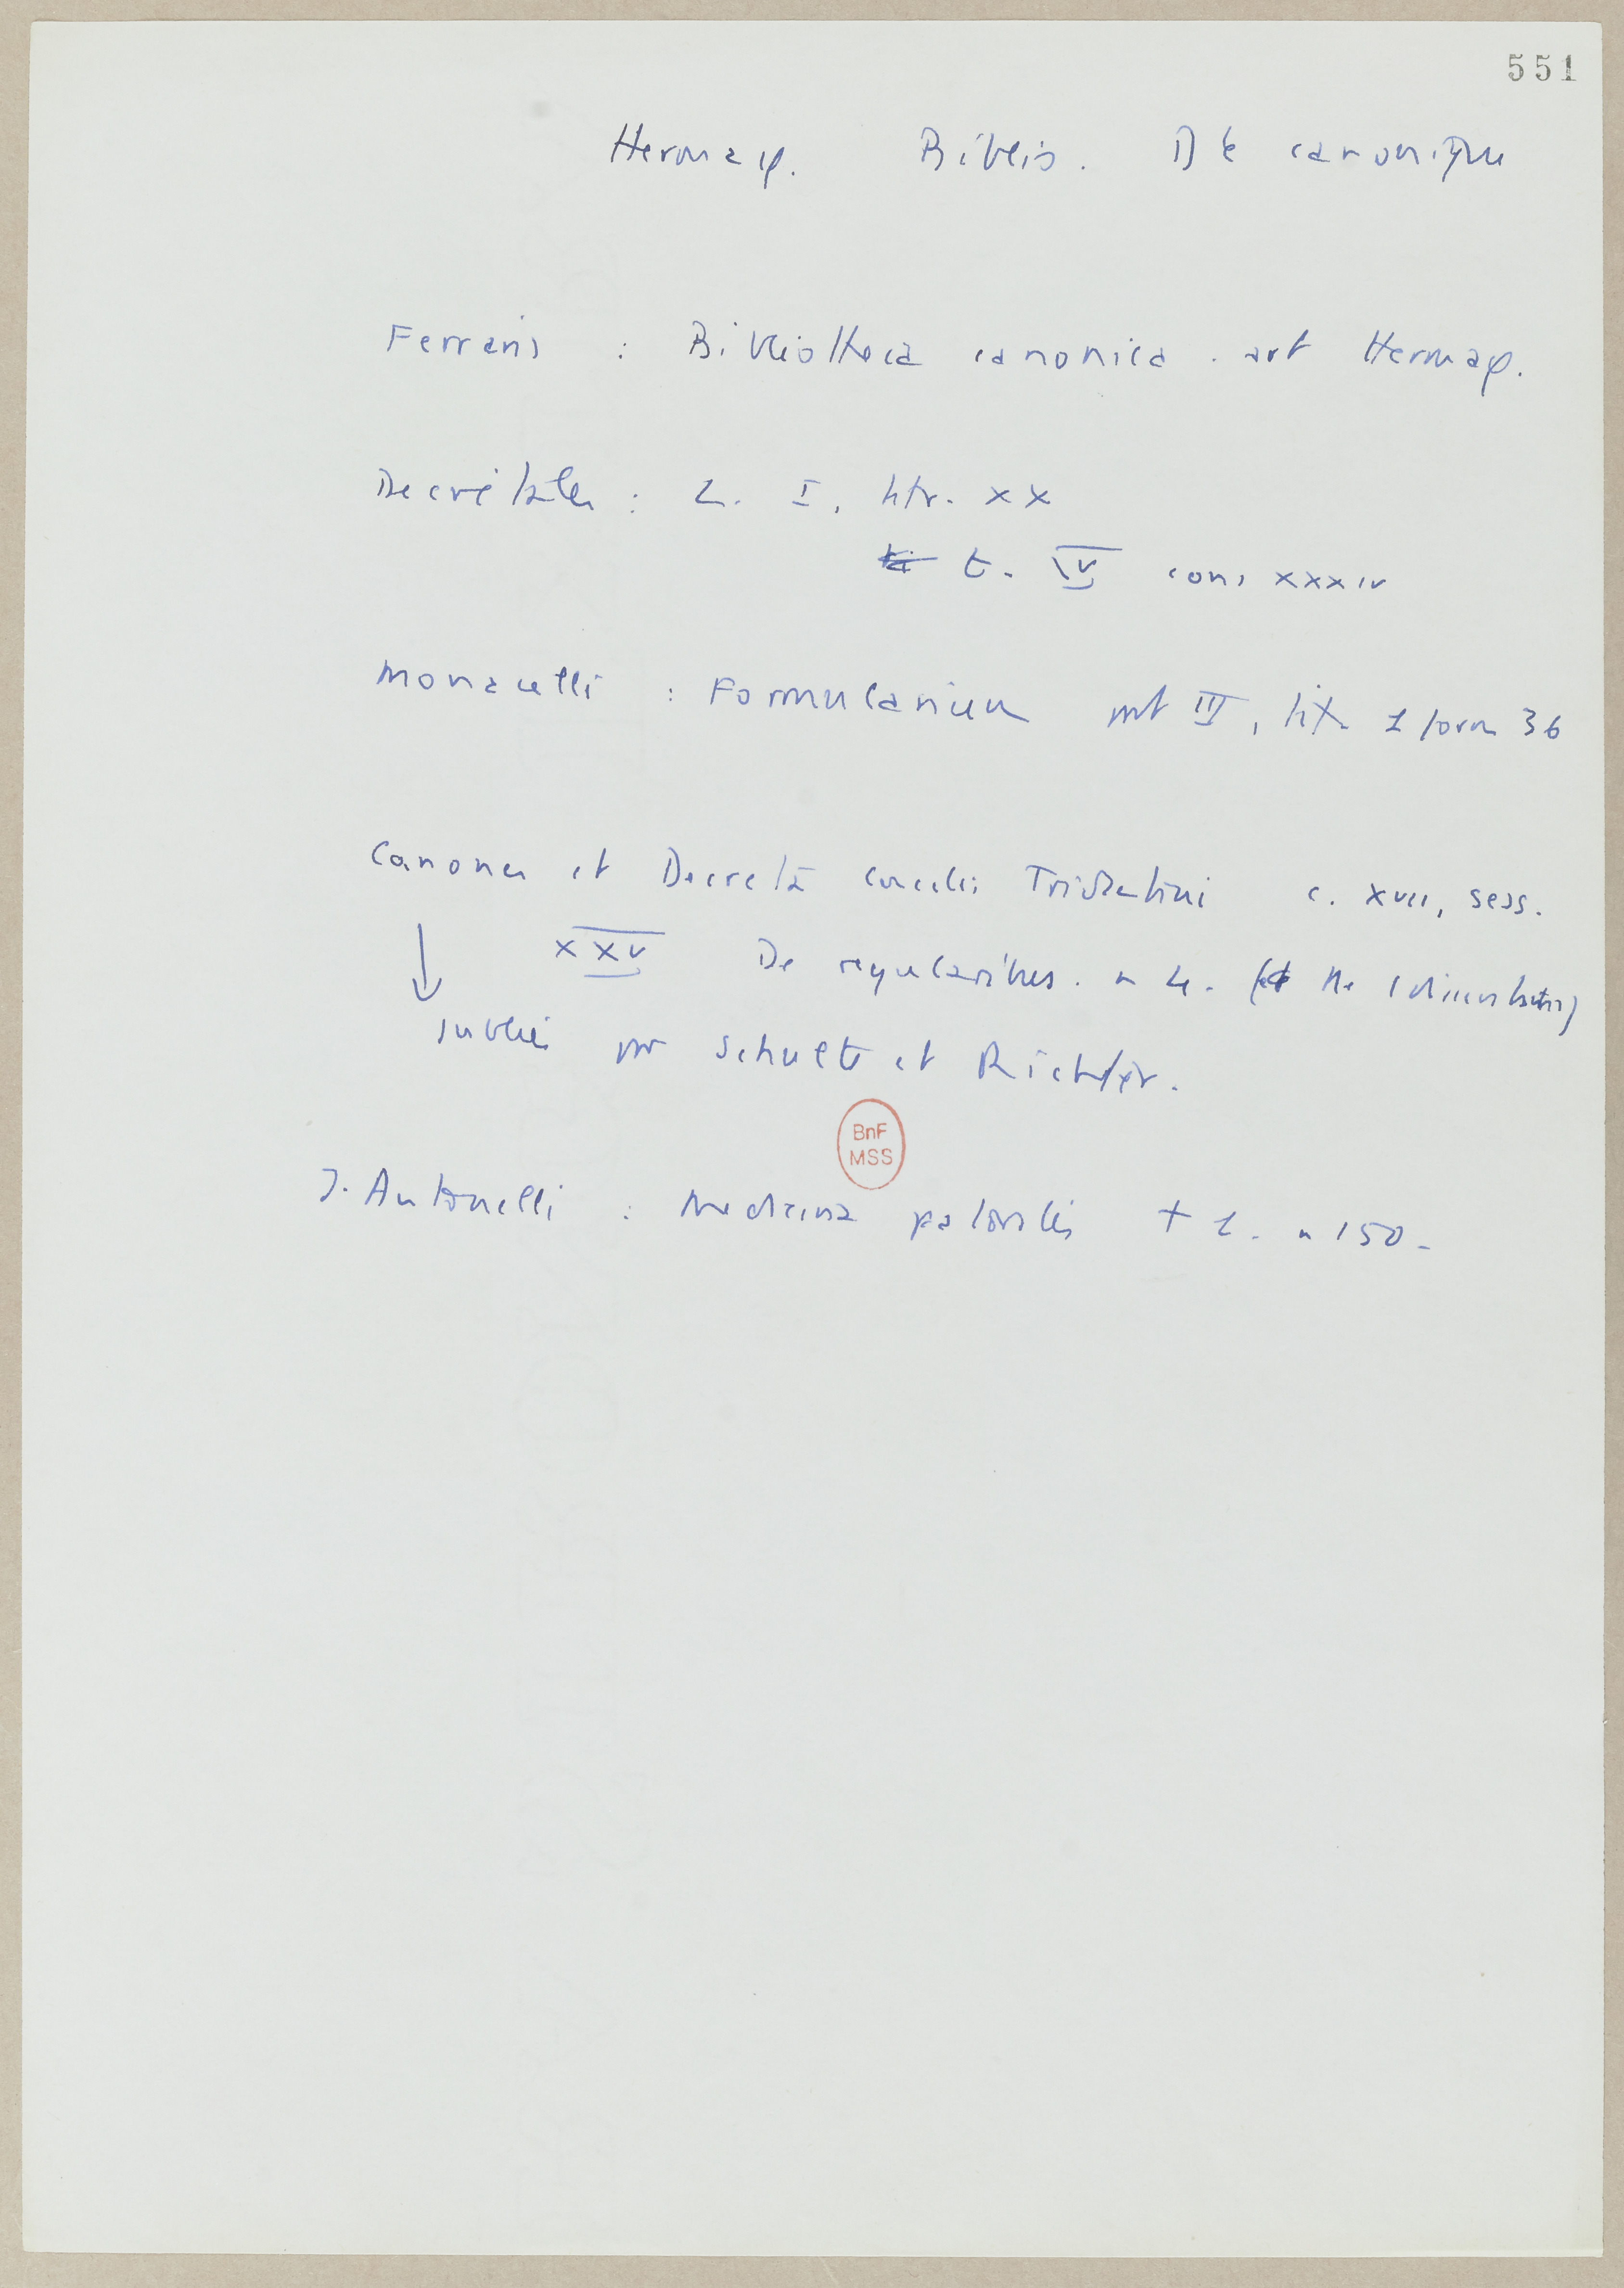 551
Hermaφ. Biblio. Dt canonique
Ferraris : Bibliotheca canonica . art Hermaφ.
Décrétales : L. I, titr. XX
t. IV cons XXXIV
Monacelli : Formularium part III, tit. 1 form 36
Canones et Decreta concilii Tridentini c. XVII, sess.
XXV De regularibus. n 4.
↓ publié par Schulte et Richter.
J. Antonelli : Medicina pastoralis t 1. n 150.
BnF
MSS